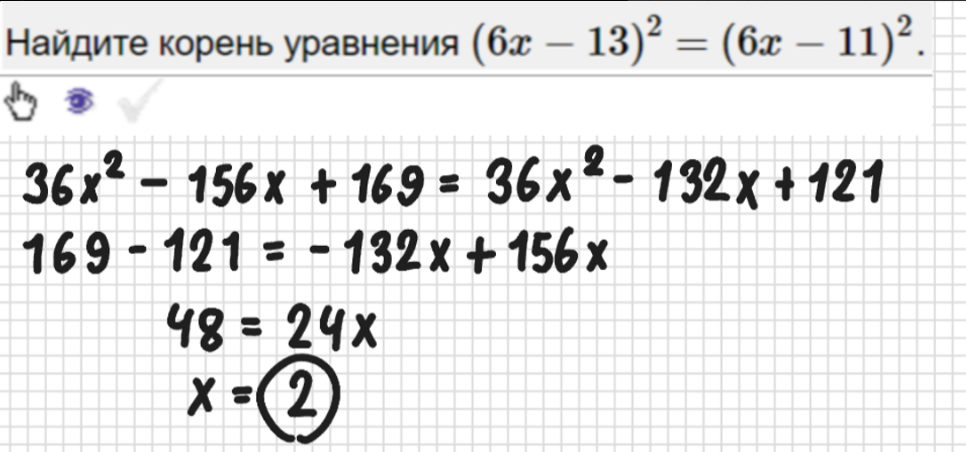 Найдите корень уравнения (6x − 13)² = (6x − 11)².
36x² − 156x + 169 = 36x² − 132x + 121
169 − 121 = − 132x + 156x
48 = 24x
x = 2